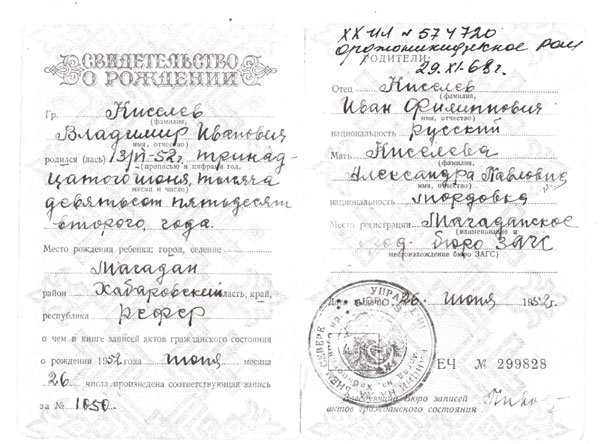 СВИДЕТЕЛЬСТВО
О РОЖДЕНИИ
Гр. Киселев
(фамилия,
Владимир Иванович
имя, отчество)
родился (лась) 13/VI-52г. тринад-
(прописью и цифрами год,
цатого июня, тысяча
месяц и число)
девятьсот пятьдесят
второго, года.
Место рождения ребенка: город, селение
Магадан
район Хабаровский область, край,
республика РСФСР
о чем в книге записей актов гражданского состояния
о рождении 1952 июня месяца
26 числа произведена соответствующая запись
за № 1050
XX ИЛ № 574720
Орджоникидзевское РОМ
РОДИТЕЛИ:
29.XI.68г.
Отец Киселев
(фамилия,
Иван Филиппович
имя, отчество)
национальность русский
Мать Киселева
(фамилия,
Александра Павловна
имя, отчество)
национальность мордовка
Место регистрации Магаданское
(наименование и
гор. бюро ЗАГС
местонахождение бюро ЗАГС)
26 июня 1952г.
ЕЧ № 299828
Заведующий Бюро записей
актов гражданского состояния